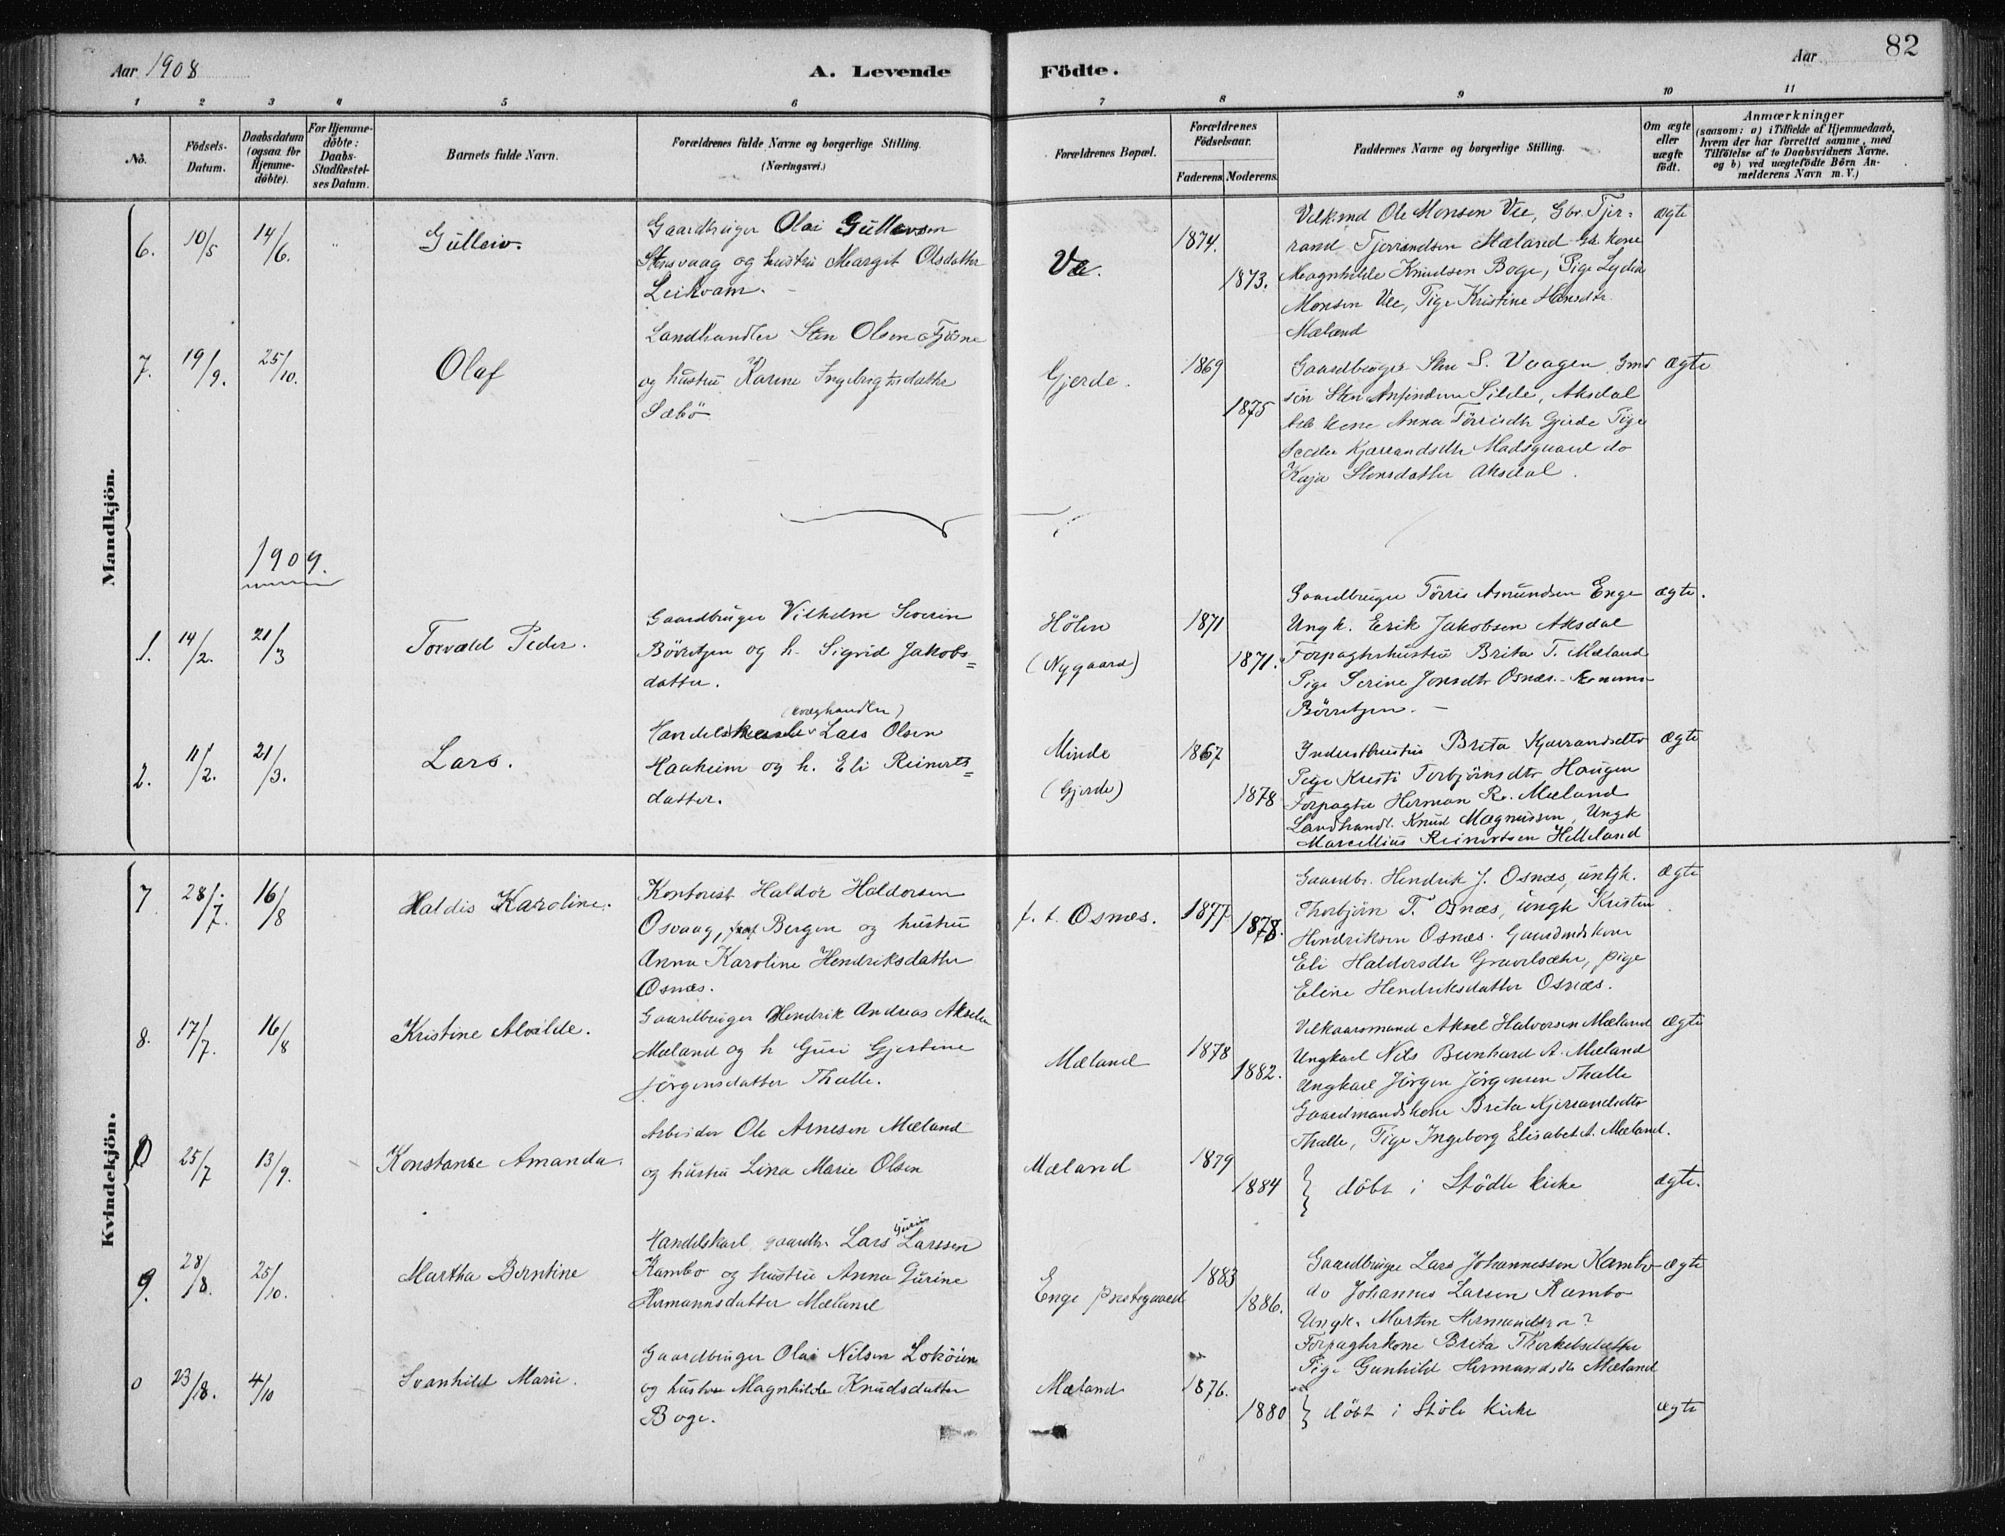 Aar 1908
A. Levende
Födte.
Aar
82
1 2 3 4 5 6 7 8 9 10 11
No.
Födsels-Datum.
Daabsdatum (ogsaa for Hjemme-döbte).
For Hjemme-döbte: Daabs-Stadfæstel-ses Datum.
Barnets fulde Navn.
Forældrenes fulde Navne og borgerlige Stilling.
(Næringsvei.)
Forældrenes Bopæl.
Forældrenes Födselsaar.
Faderens. Moderens.
Faddernes Navne og borgerlige Stilling.
Om ægte eller uægte födt.
Anmærkninger
(saasom: a) i Tilfælde af Hjemmedaab,
hvem der har forrettet samme, med
Tilföielse af to Daabsvidners Navne.
og b) ved uægtefödte Börn An-
melderens Navn m. V.)
Mandkjön.
6. 10/5 14/6. " Gulleiv.
Gaardbruger Olai Gullevsen
Stensvaag og hustru Margit Olsdatter
Leikvam.
Ve. 1874. 1873.
Ole Monsen Vee, Gbr. Tjer-
rand Tjerrandsen Mæland Gk kone
Magnhilde Knudsen Boge, Pige Lydia
Monsen Vee, Pige Kristine Hansdtr.
Mæland
ægte
7. 19/9. 25/10. Olaf
Landhandler Sten Olsen Fjösne
og hustru Karine Ingebrigtsdatter
Sæbö
Gjerde. 1869 1875
Gaardbruger Sten S. Vaagen, Gmd
Sten Anfindsen Silde, Aksdal
kone Anna Törrisdtr Gjerde Pige
Kjærrandsdtr Madsgaard do
Kaja Stensdatter Aksdal.
ægte
1909.
1. 14/2. 21/3 Torvald Peder.
Gaardbruger Vilhelm Severin
Börretzen og h. Sigrid Jakobs-
datter.
Hölen
(Nygaard)
1871 1871.
Gaardbruger Törris Asmundsen Enge
Ungk. Erik Jakobsen Aksdal
Forpagterhustru Brita T. Mæland
Pige Serine Jonsdtr Osnæs.
Börretzen.
ægte.
2. 11/2. 21/3. Lars.
(kvæghandler)
Handelskarl Lars Olsen
Haaheim og h. Eli Reinerts-
datter.
Minde
(Gjerde)
1867 1878
Inderst hustru Brita Kjærrandsdtr
Pige Kristi Torbjörnsdtr Haugen
Forpagter Herman R. Mæland
Landhandl. Knud Magnussen, Ungk
Marcellius Reinertsen Helleland
ægte
Kvindekjön.
7 28/7. 16/8 Haldis Karoline.
Kontorist Haldor Haldorsen
Osvaag, Bergen og hustru
Anna Karoline Hendriksdatter
Osnæs.
f. t. Osnæs. 1877 1878.
Gaardbr. Hendrik J. Osnæs, ungk.
Thorbjörn T. Osnæs, ungk Kristen
Hendriksen Osnæs. Gaardmdskone
Eli Haldorsdtr Gravelsæter, pige
Eline Hendriksdatter Osnæs.
ægte
8. 17/7. 16/8 Kristine Alvilde.
Gaardbruger Hendrik Andreas Akselsen
Mæland og h Guri Gjertine
Jörgensdatter Thalle.
Mæland 1878 1882.
Vilkaarsmand Aksel Halvorsen Mæland
Ungkarl Nils Bernhard A. Mæland
Ungkarl Jörgen Jörgensen Thalle
Gaardmandskone Brita Kjerrandsdtr
Thalle, Pige Ingeborg Elisabet A. Mæland.
ægte
0 25/7 13/9. Konstanse Amanda.
Arbeider Ole Arnesen Mæland
og hustru Lina Marie Olsen
Mæland 1879 1884
döbt i Stödle kirke
ægte.
9. 28/8. 25/10. Martha Berntine
Handelskarl gaardbr. Lars Gurin Larssen
Kambo og hustru Anna Gurine
Hermannsdatter Mæland
Enge prestegaard 1883 1886.
Gaardbruger Lars Johannessen Kambo
do Johannes Larsen Kambo
Ungk. Martin Hermandsen ?
Forpagterkone Brita Thorkelsdatter
Pige Gunhild Hermandsdtr Mæland
ægte
0 23/8. 4/10 Svanhild Marie.
Gaardbruger Olai Nilsen Loköien
og hustru Magnhilde Knudsdatter
Boge.
Mæland 1876. 1880
döbt i Stöle kirke
ægte